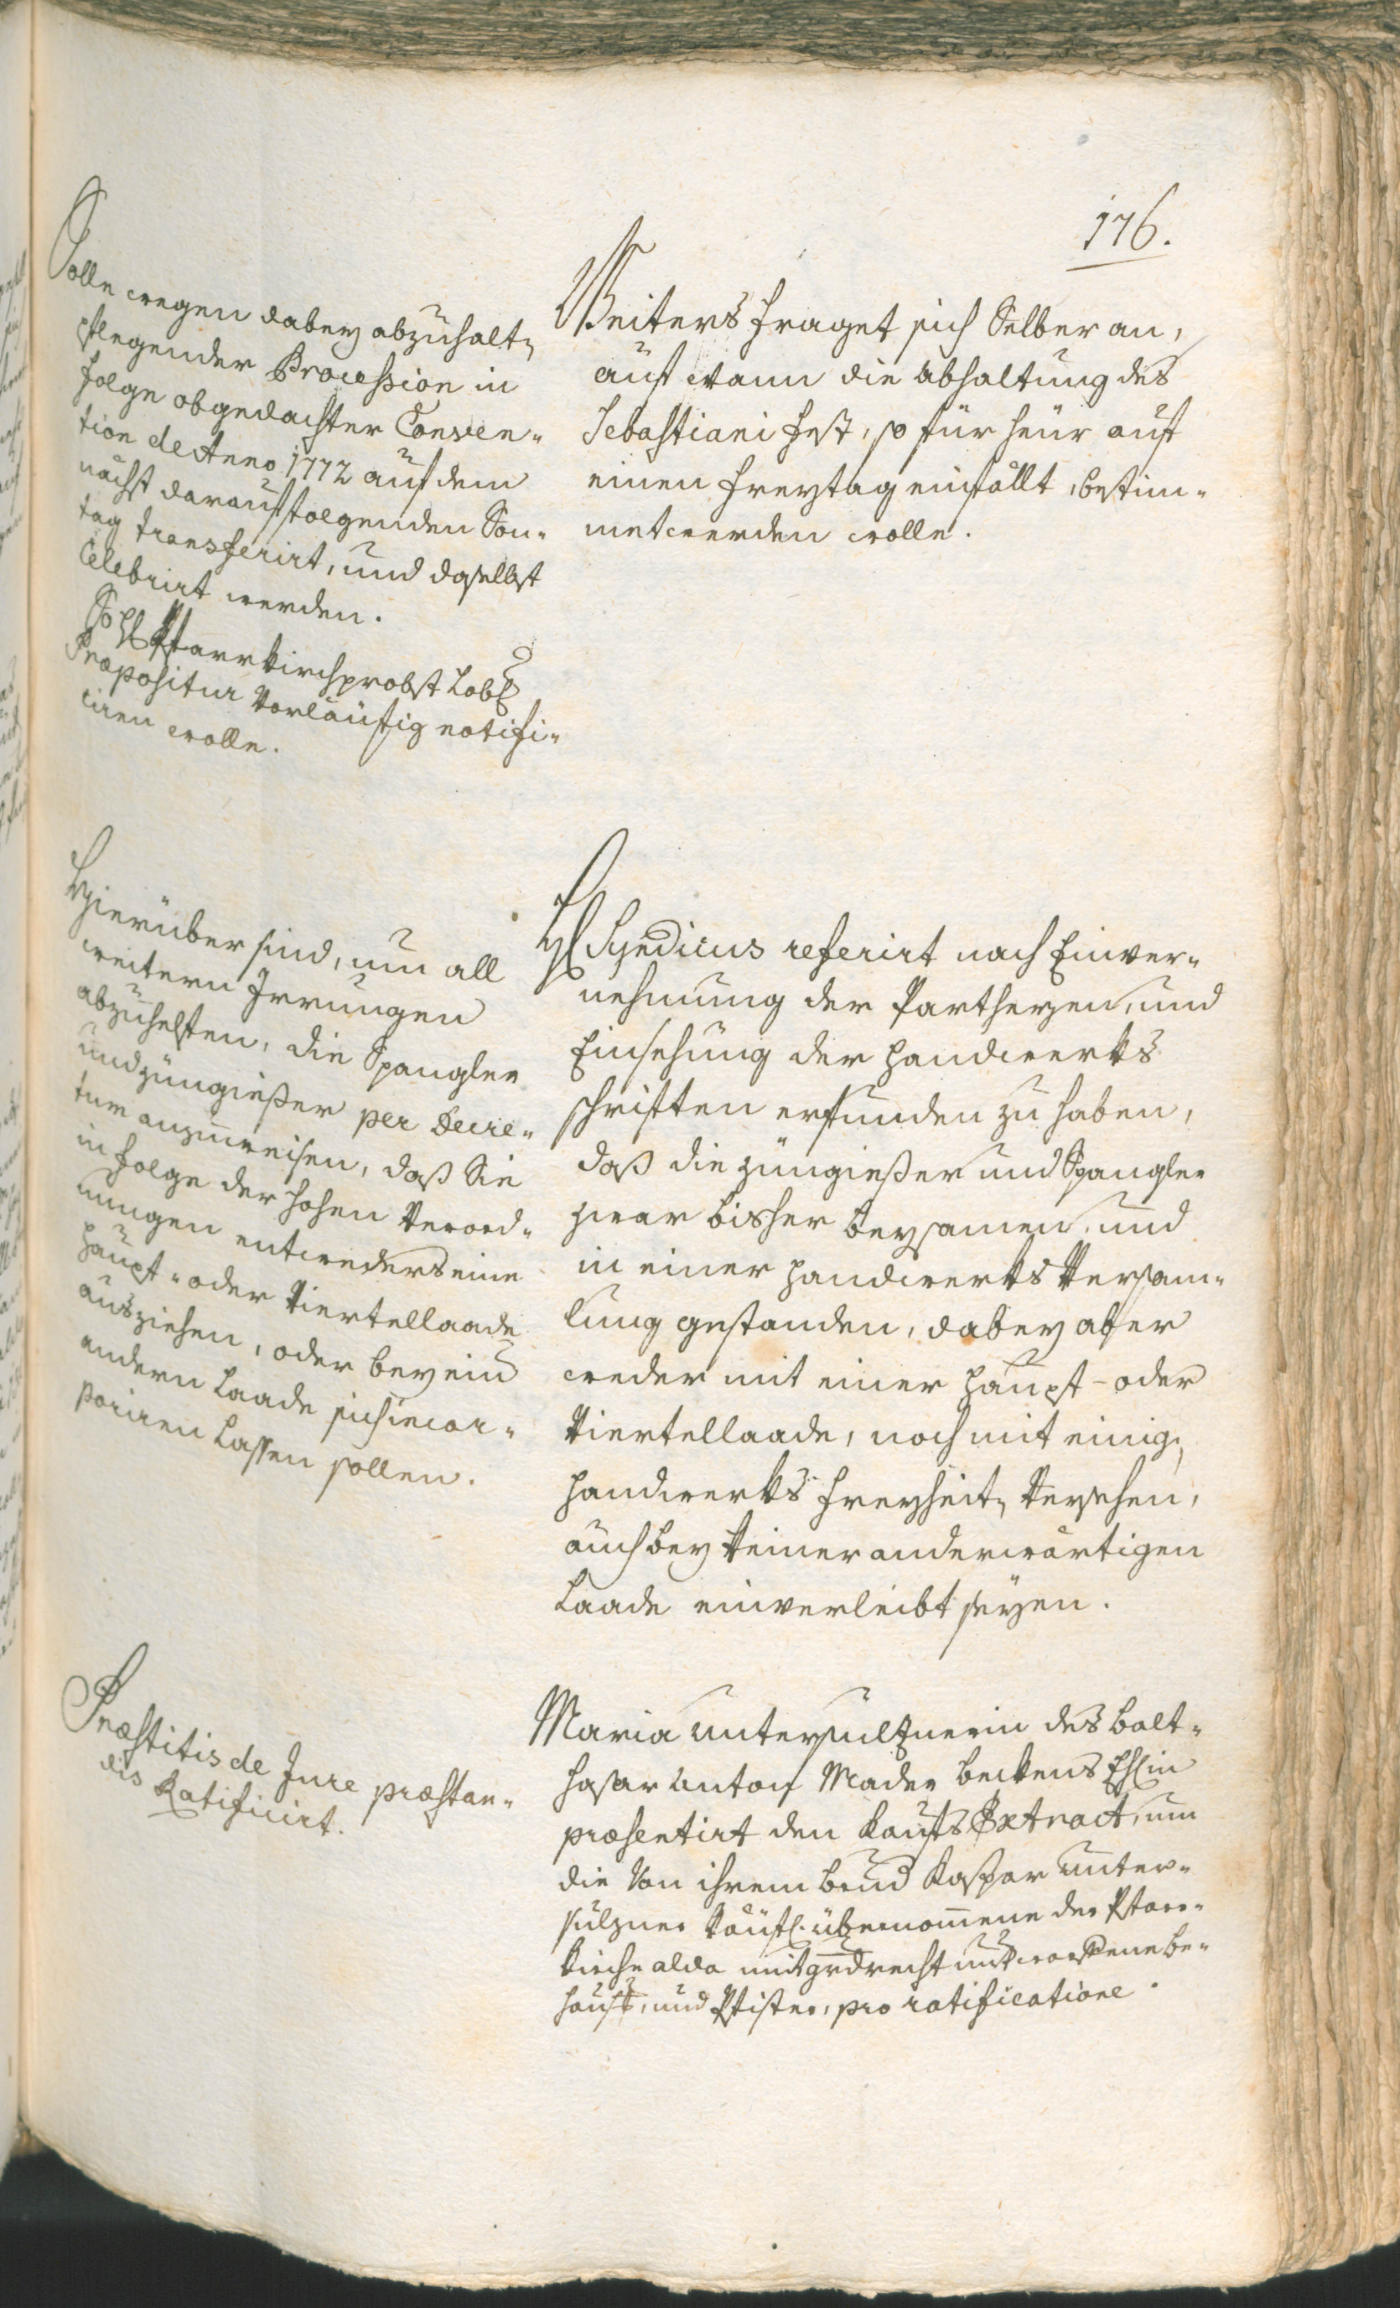 176.
Solle wegen dabey abzuhalt
pflegender Procession in
folge obgedachter Conven-
tion de Anno 1772 auf dem
nächst darauffolgenden Son-
tag transferirt, und daselbst
Celebrirt werden.
Pfarrkirchprobst Löbl
Propositur Vorläufig notifi-
ciren wolle.
Weiters fraget sich Selber an,
auf wann die abhaltung des
Sebastiani fest, so für heür auf
einen Freytag einfällt, bestim-
met werden wolle.
Hierüber sind, um all
weitern Irrungen
abzuhelfen, die Spangler
und züngießer per Decre-
tum anzuweisen, daß Sie
in folge der hohen Verord-
nungen entweders eine
haupt- oder Viertellaade
ausziehen, oder bey ein
andern Laade sich incor-
poriren Lassen sollen.
H Syndicus referirt nach Einver-
nehmung der Partheyen, und
Einsehung der handwerks
schriften erfunden zu haben,
daß die züngießer und Spangler
zwar bisher beysamen, und
in einer handwerks Versam-
lung gestanden, dabey aber
weder mit einer haupt- oder
Viertellaade, noch mit einig
handwerks Freyheit Versehen,
auch bey keiner anderwärtigen
Laade einverleibt seyen.
Præstitis de Jure præstan-
dis Ratificirt.
Maria untersulznerin des balt-
hasar Anton Mader beckens Ehlin
præsentirt den kaufs Extract, um
die Von ihrem brud Kaspar unter-
sulzner käufl. übernommene der Pfarr-
kirche alda mit grdrecht be-
haus, und Pfister, pro ratificatione.